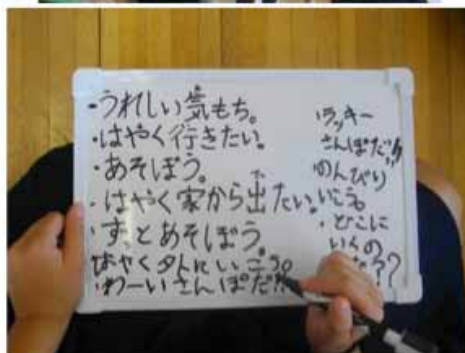 ・うれしい気もち。
・はやく行きたい。
・あそぼう。
・はやく家から出たい。
・ずっとあそぼう。
はやく外にいこう。
・わーいさんぽだ!!
・ラッキー
さんぽだ!!
のんびり
いこう。
・どこに
いくの
??